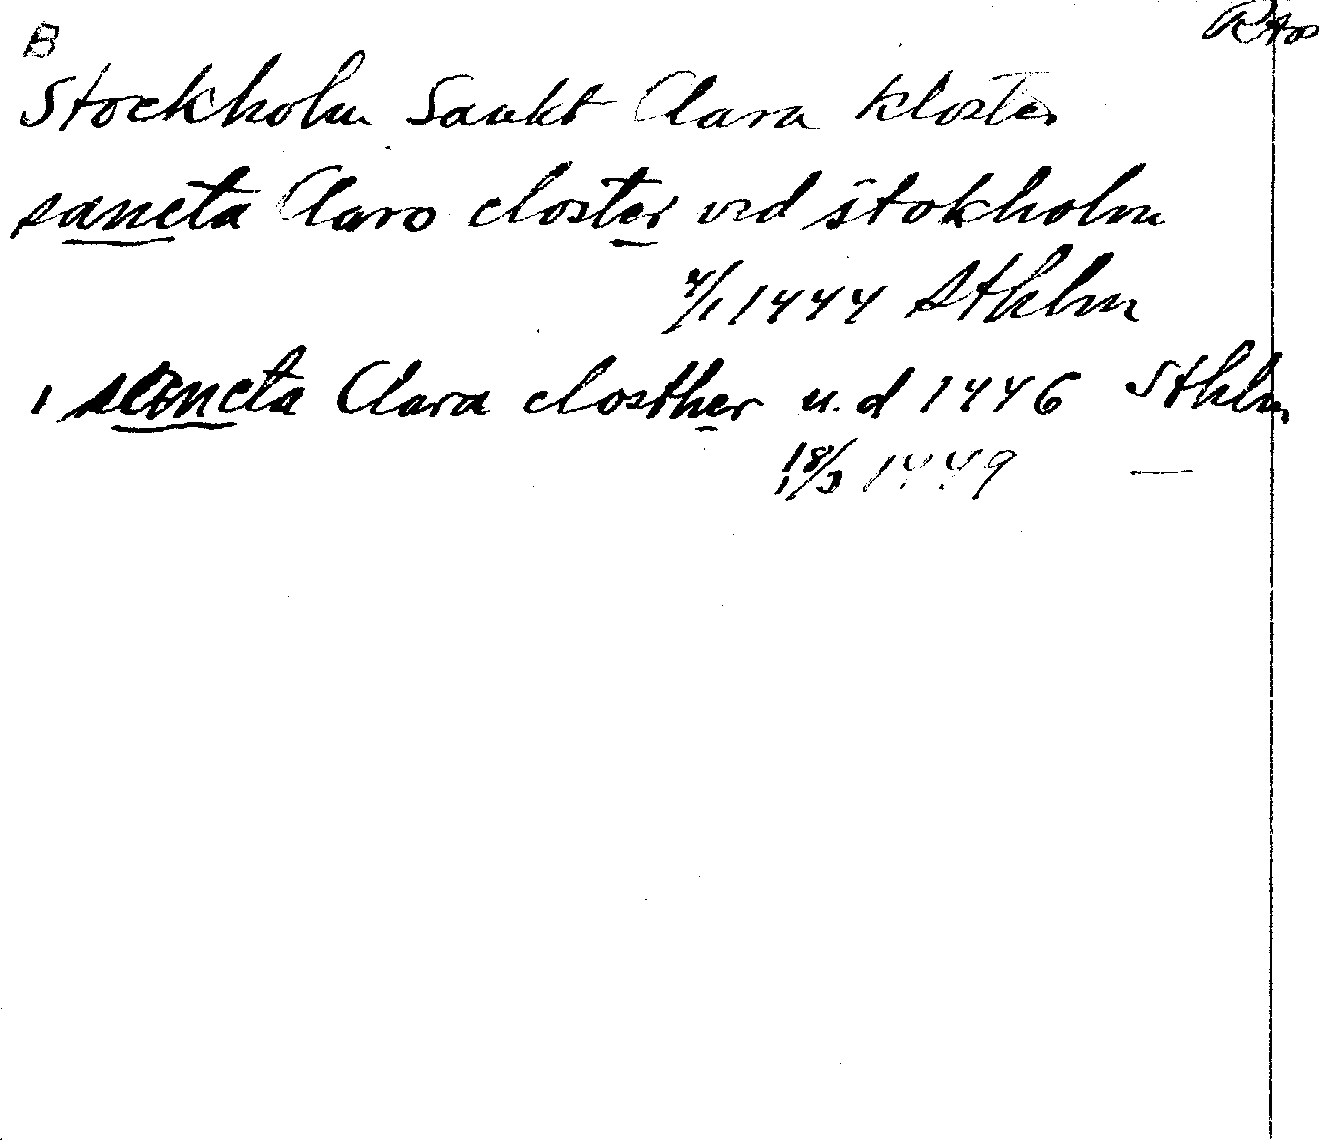 B RAp
Stockholm Sankt Clara kloster
sancta Claro closter vid stokholm
4/1 1444 Sthlm
, sancta Clara closther u.d 1446 Sthlm
18/3 1449 —